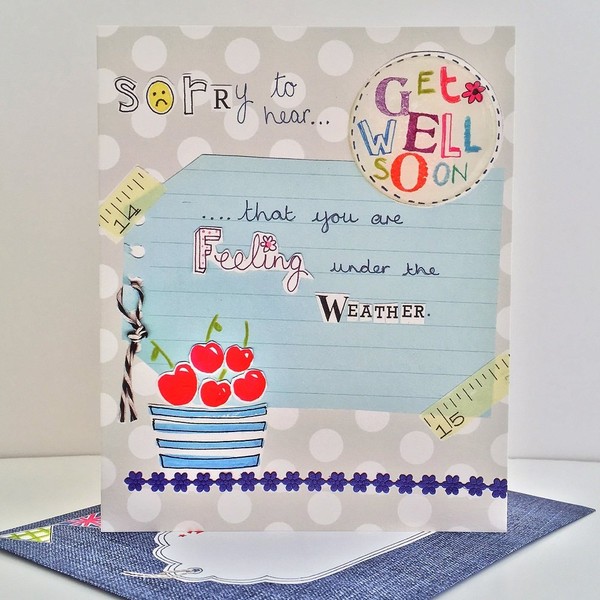 sorry to
hear...
GEt
WELL
SOON
.... that you are
Feeling under the
WEATHER.
14
15